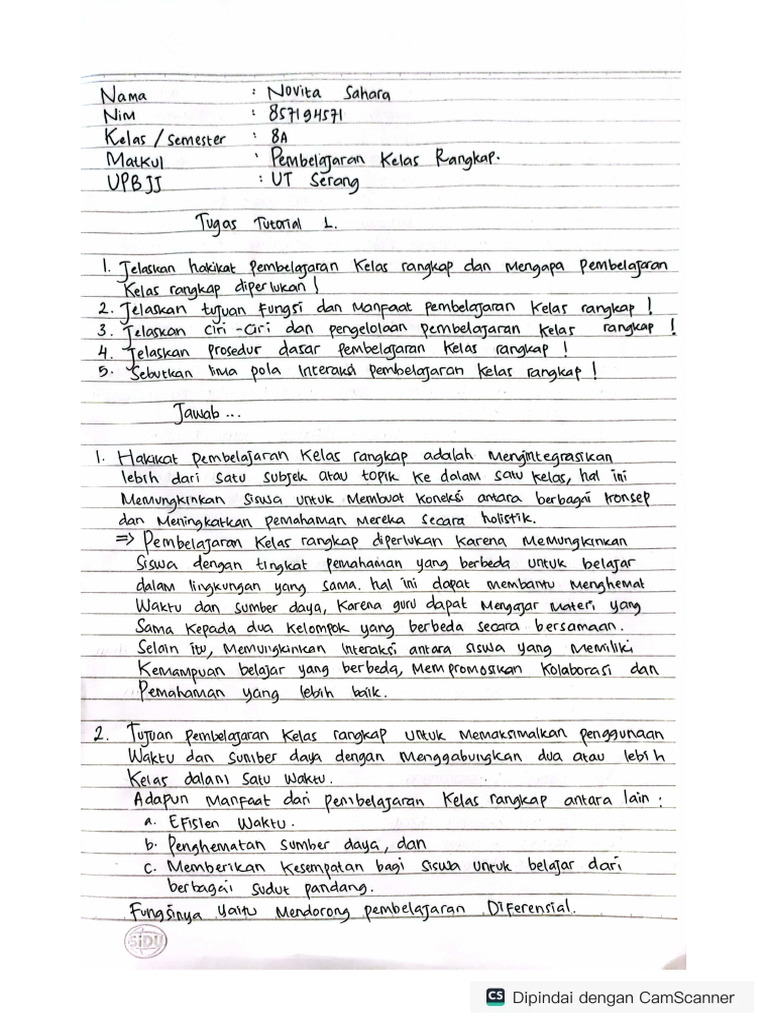 Nama : Novita Sahara
Nim : 857194571
Kelas / Semester : 8A
Matkul : Pembelajaran Kelas Rangkap.
UPBJJ : UT Serang
Tugas Tutorial 1.
1. Jelaskan hakikat pembelajaran Kelas rangkap dan Mengapa Pembelajaran
Kelas rangkap diperlukan !
2. Jelaskan tujuan Fungsi dan Manfaat pembelajaran Kelas rangkap !
3. Jelaskan Ciri-Ciri dan pengelolaan pembelajaran Kelas rangkap !
4. Jelaskan prosedur dasar Pembelajaran Kelas rangkap !
5. Sebutkan lima pola Interaksi Pembelajaran Kelas rangkap !
Jawab ...
1. Hakikat pembelajaran Kelas rangkap adalah Mengintegrasikan
lebih dari satu subjek atau topik Ke dalam satu kelas, hal ini
Memungkinkan Siswa untuk Membuat Koneksi antara berbagai Konsep
dan Meningkatkan pemahaman Mereka Secara holistik.
=> Pembelajaran Kelas rangkap diperlukan Karena Memungkinkan
Siswa dengan tingkat pemahaman yang berbeda untuk belajar
dalam lingkungan yang sama. hal ini dapat membantu Menghemat
Waktu dan sumber daya, Karena guru dapat Mengajar Materi yang
Sama Kepada dua Kelompok yang berbeda secara bersamaan.
Selain itu, Memungkinkan Interaksi antara siswa yang Memiliki
Kemampuan belajar yang berbeda, Mempromosikan Kolaborasi dan
Pemahaman yang lebih baik.
2. Tujuan Pembelajaran Kelas rangkap untuk Memaksimalkan penggunaan
Waktu dan Sumber daya dengan Menggabungkan dua atau lebih
Kelas dalam Satu Waktu.
Adapun Manfaat dari pembelajaran Kelas rangkap antara lain :
a. Efisien Waktu.
b. Penghematan Sumber daya, dan
c. Memberikan Kesempatan bagi Siswa untuk belajar dari
berbagai Sudut pandang.
Fungsinya yaitu Mendorong pembelajaran Diferensial.
SiDU
CS Dipindai dengan CamScanner